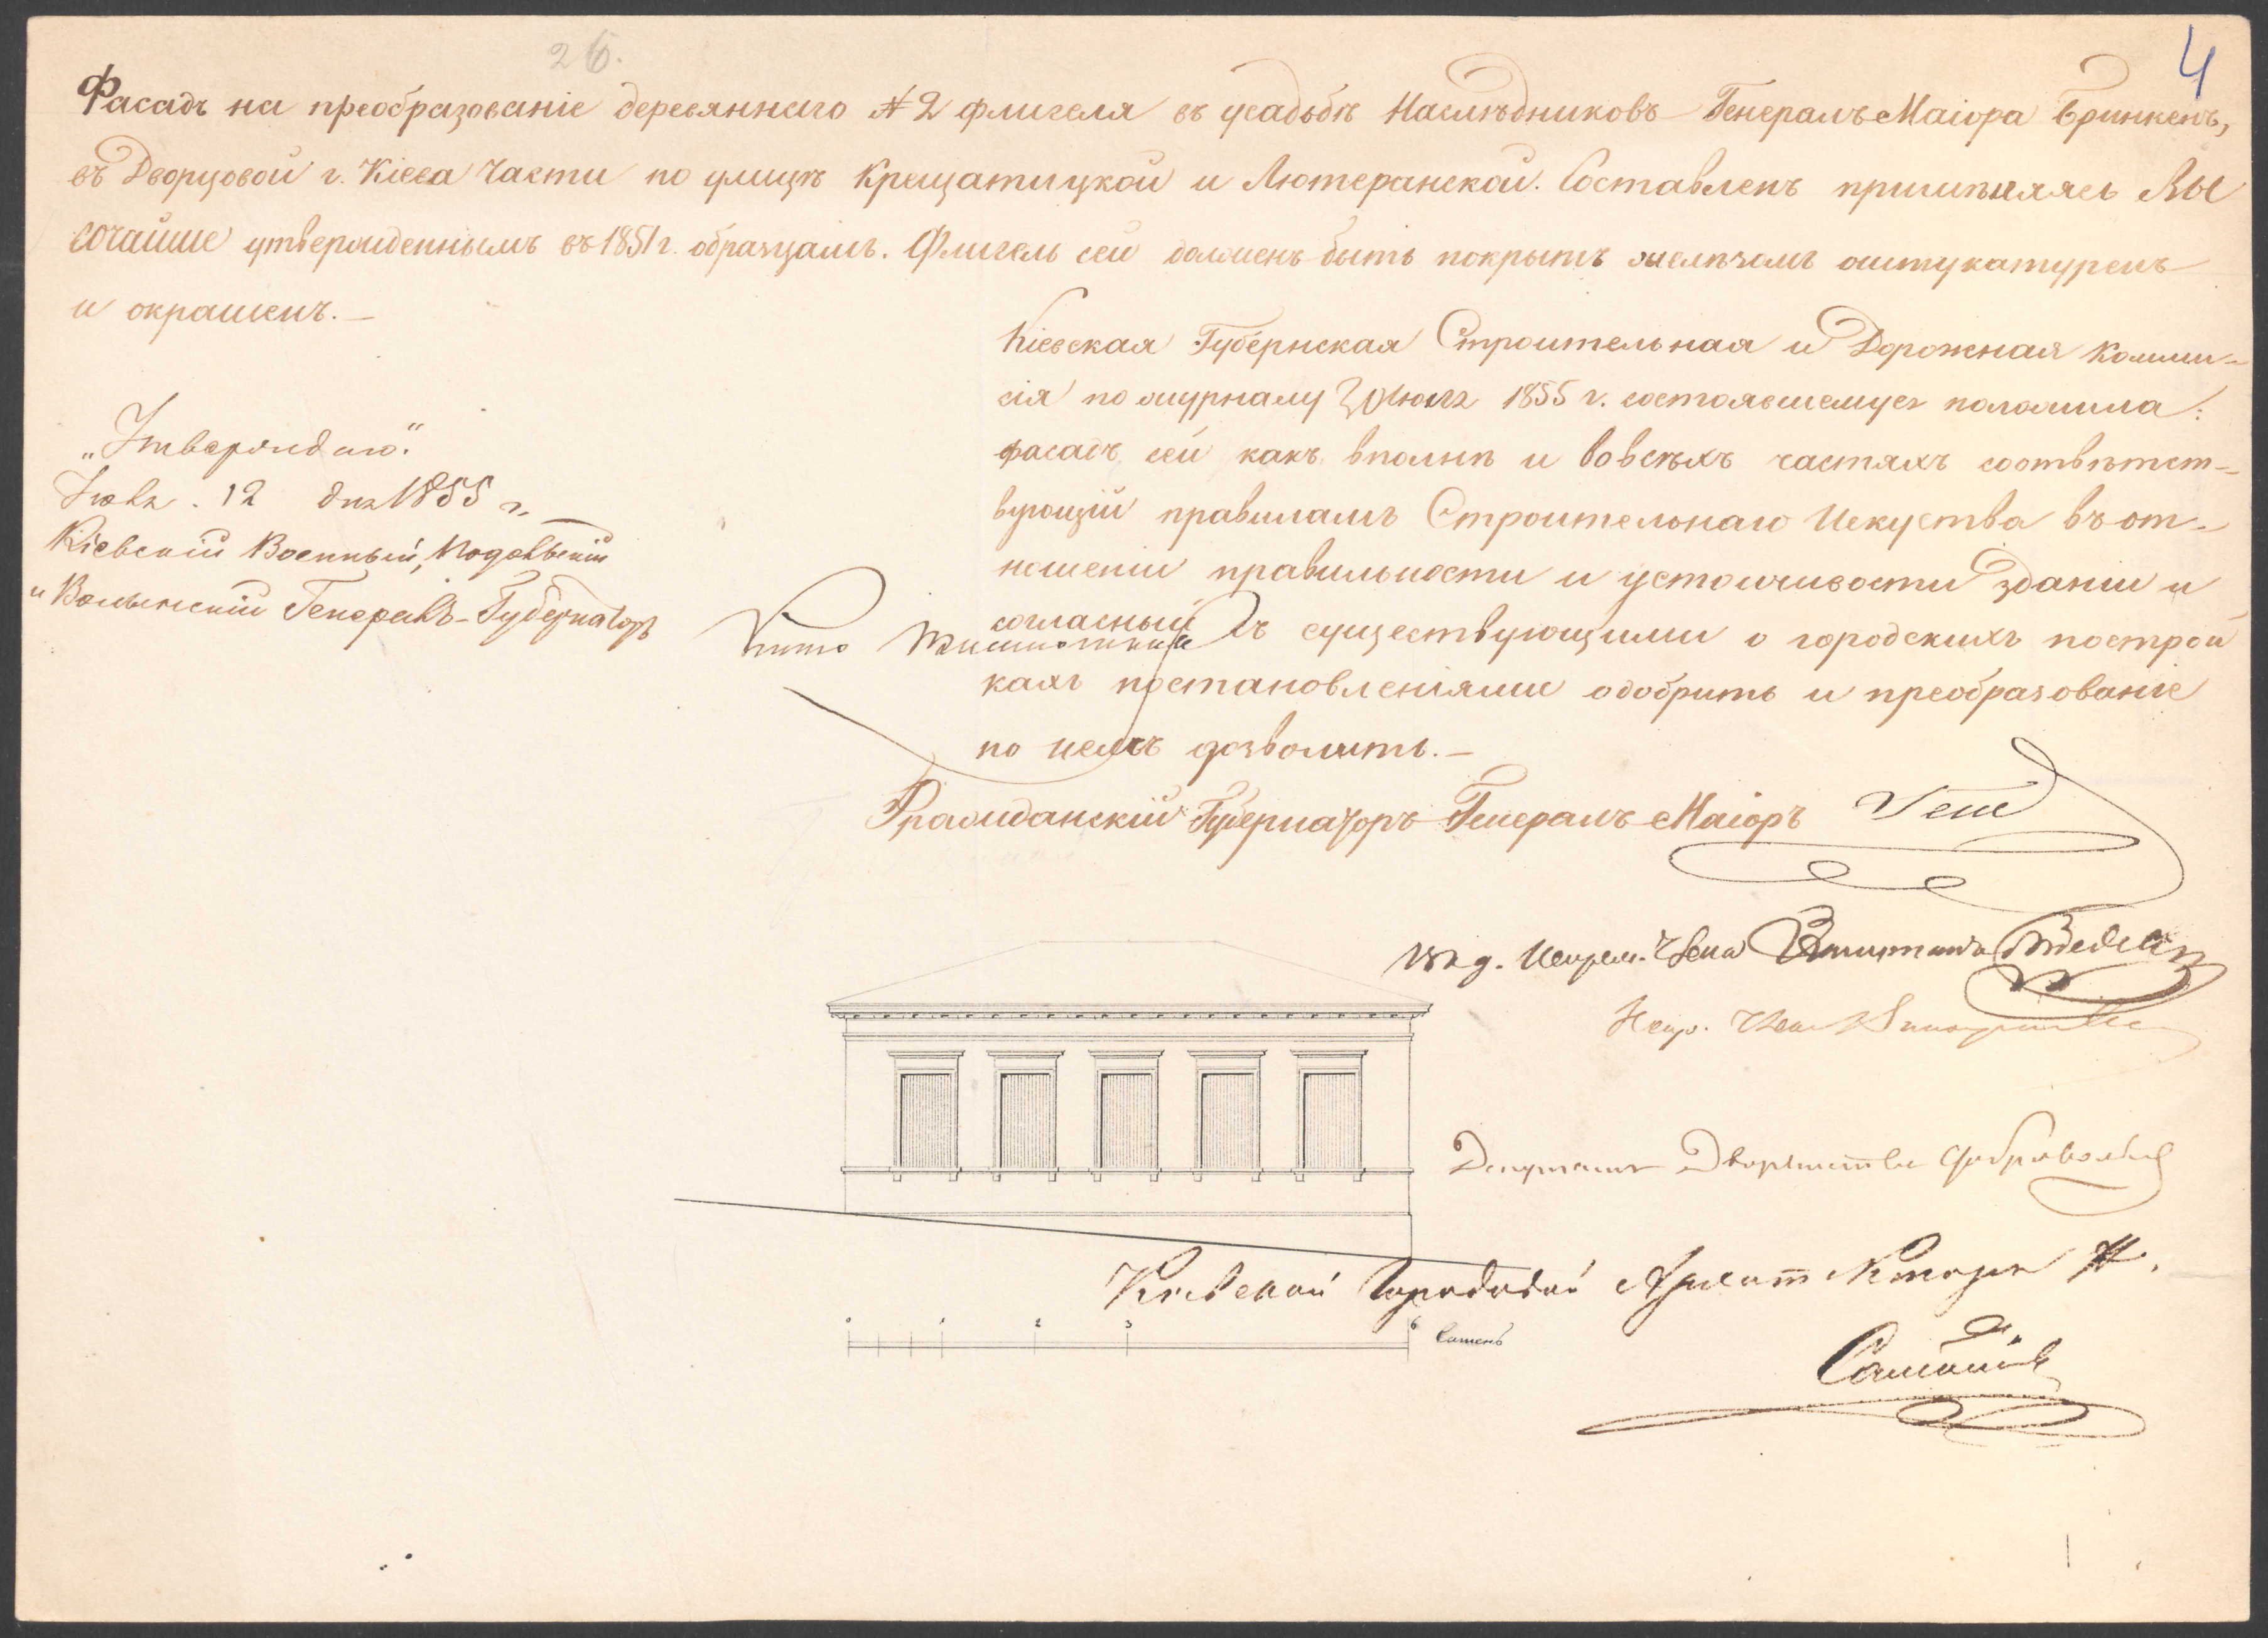 26.
4
Фасадъ на преобразованіе деревяннаго № 2 флигеля въ усадьбѣ Наслѣдниковъ Генералъ Маіора Бринкенъ,
въ Дворцовой г. Кіева Части по улицѣ Крещатицкой и Лютеранской. Составленъ примѣняясь Вы
сочайше утвержденнымъ въ 1851 г. образцамъ. Флигель сей долженъ быть покрытъ желѣзомъ оштукатуренъ
и окрашенъ. —
„Утверждаю“.
12 дня 1855 г.
Кіевскій Военный, Подольскій
и Волынскій Генералъ-Губернаторъ
Кіевская Губернская Строительная и Дорожная Комми-
сія по журналу 1855 г. состоявшемуся положила:
фасадъ сей какъ вполнѣ и во всѣхъ частяхъ соотвѣтст-
вующій правиламъ Строительнаго Искуства въ от-
ношеніи правильности и устойчивости зданій и
согласный съ существующими о городскихъ построй
кахъ постановленіями одобрить и преобразованіе
по немъ дозволить. —
Гражданскій Губернаторъ Генералъ-Маіоръ Гессе
Члена
Депутатъ Дворянства
Кіевскій Городовой Архитекторъ
0 1 2 3 6 Саженъ